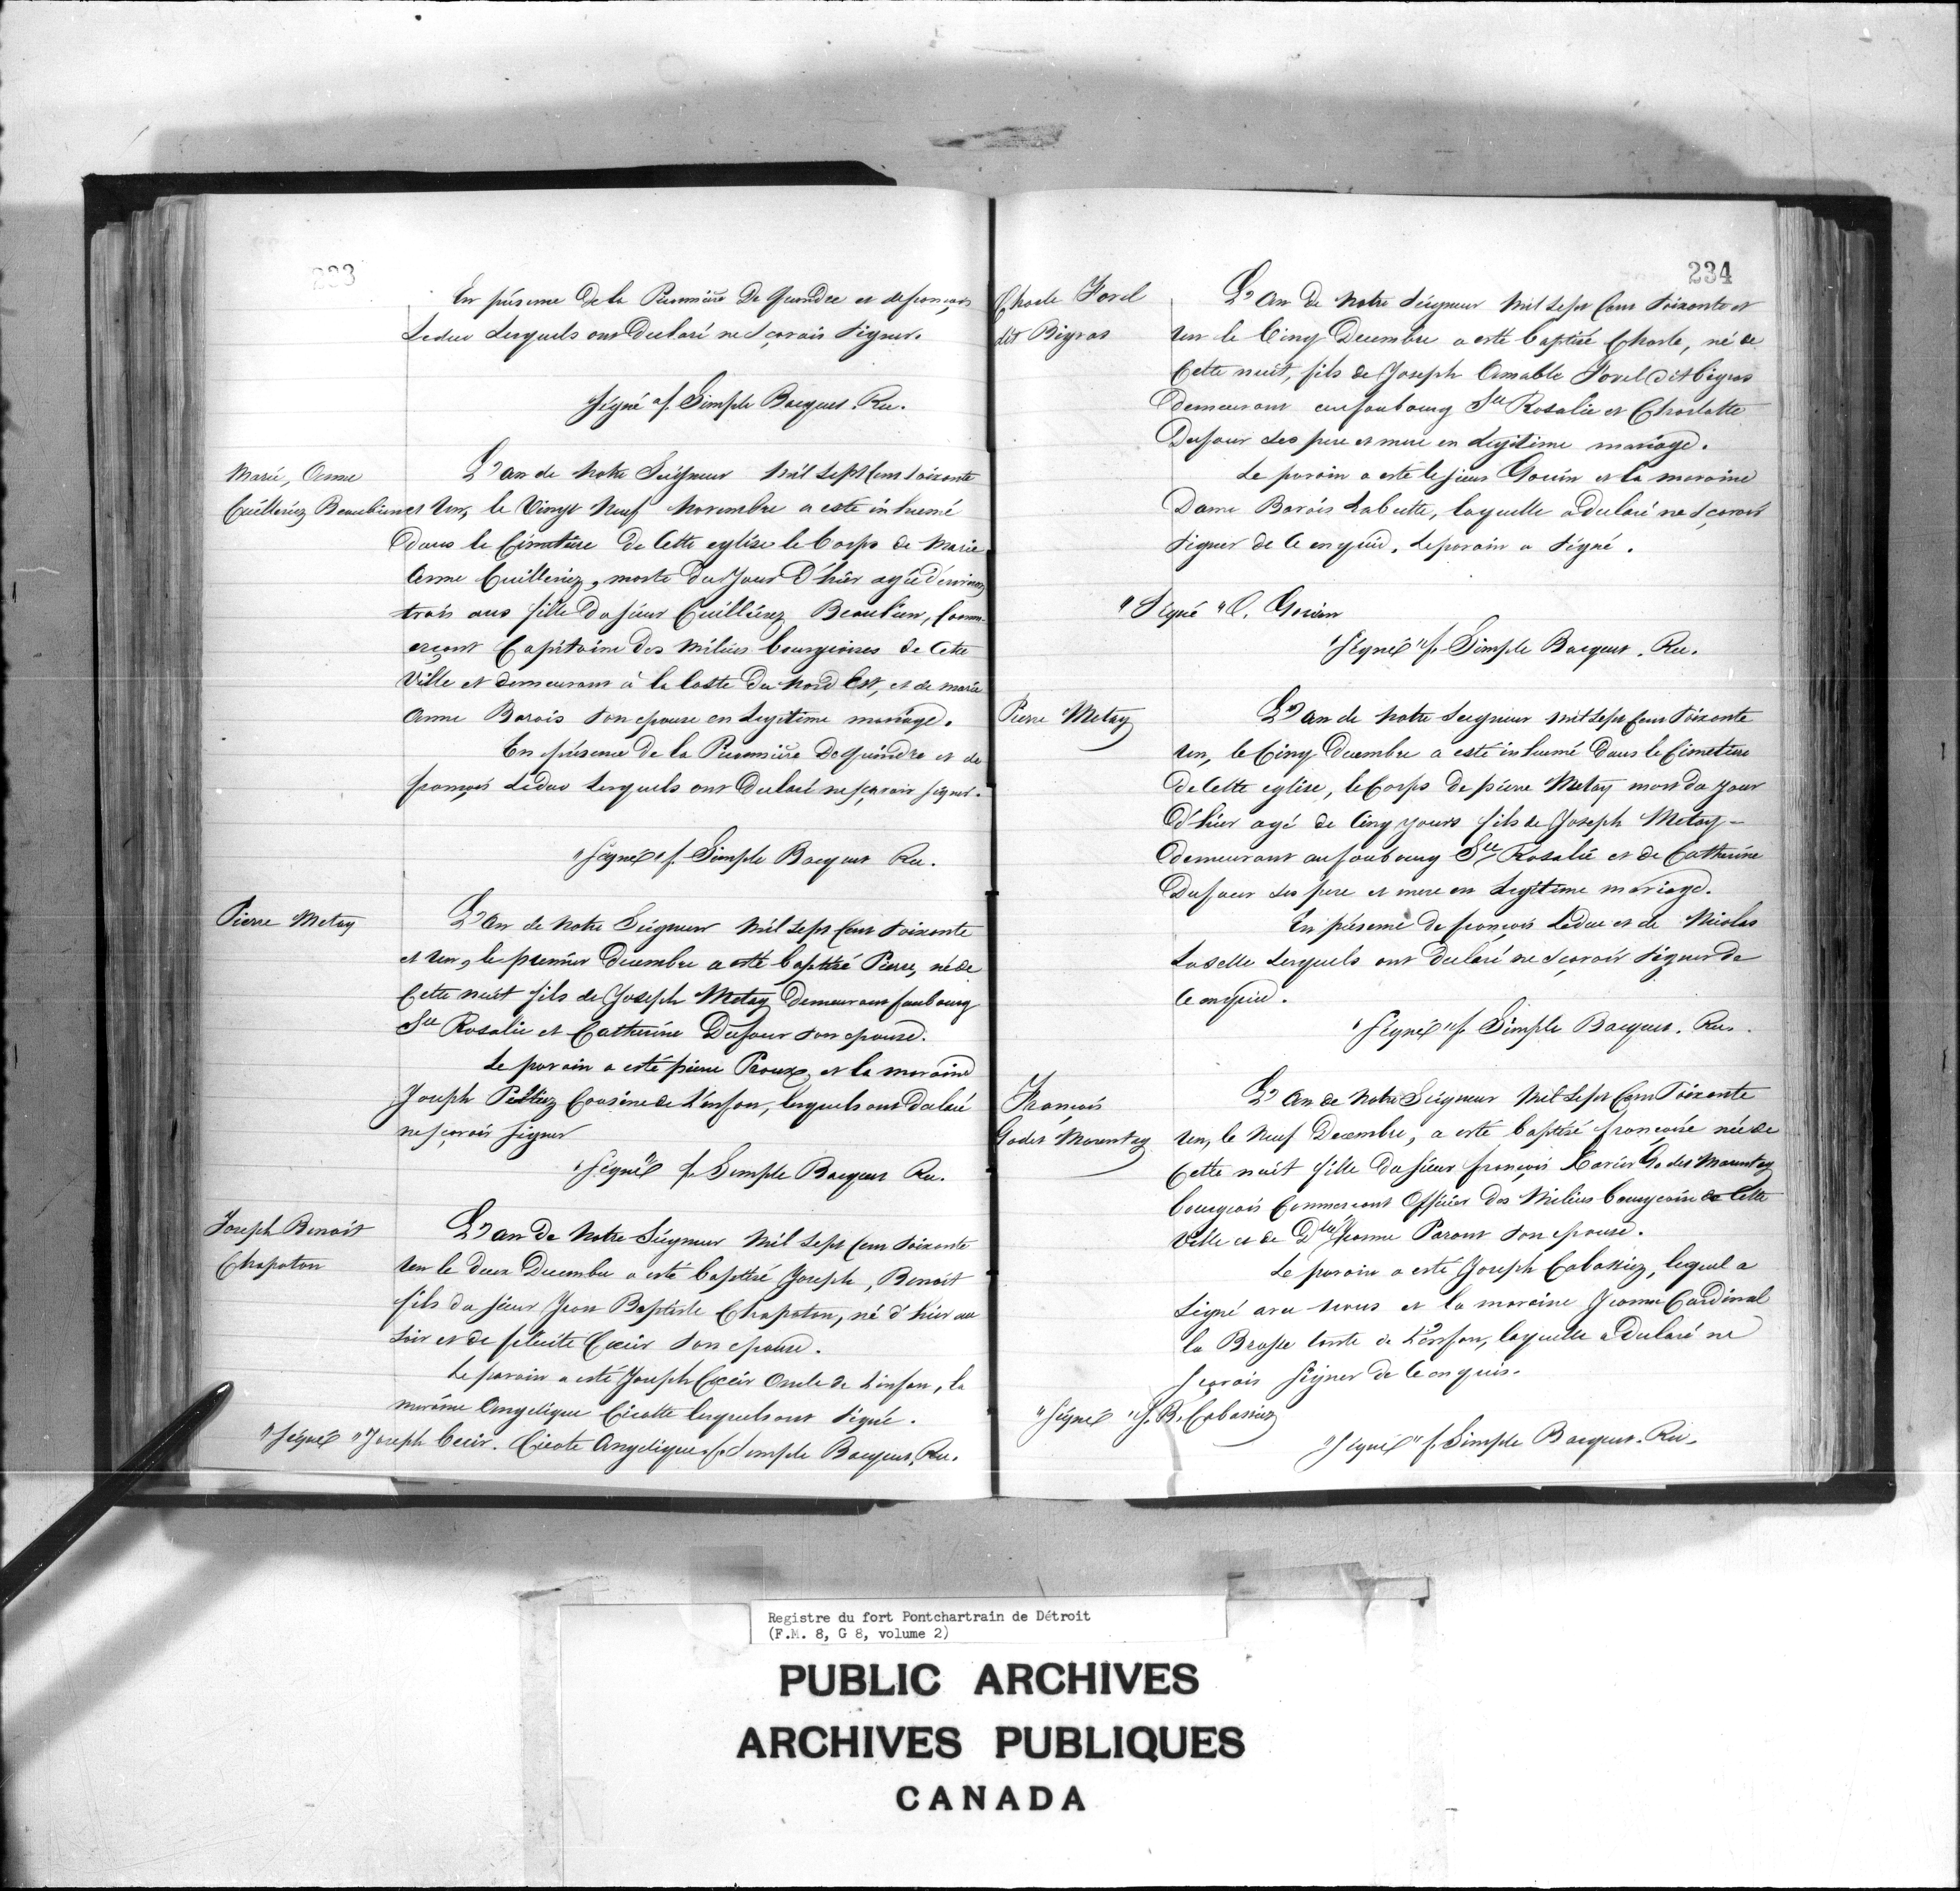 233
En présence de la Picannière De quindre et de françois
Leduc Lesquels ont Declaré ne sçavoir signer.
signé f. Simple Bocquet. Rec.
Marie, Anne
Cuilleriez Beaubien
L'an de Notre Seigneur Mil sept cent soixante
et un, le Vingt Neuf Novembre a esté inhumé
dans le Cimetiere de Cette eglise le Corps de Marie
Anne Cuilleriez, morte du Jour D'hier agée d'environ
trois ans fille du sieur Cuillerier Beaubien, Comm-
erçant Capitaine des Milices bourgeoises de Cette
Ville et demeurant à la Coste du Nord Est, et de marie
Anne Barois son epouse en Legitime mariage.
En présence de la Picannière Dequindre et de
françois Leduc Lesquels ont Declaré ne sçavoir signer.
"signé" f. Simple Bocquet Rec.
Pierre Metay
L'an de Notre Seigneur Mil sept Cent soixante
et un, le premier decembre a esté baptisé Pierre, né de
Cette nuit fils de Joseph Metay Demeurant faubourg
Ste Rosalie et Catherine Dufour son epouse.
Le parain a esté pierre Proux, et la maraine
Joseph Peltiez Cousine de L'enfan, lesquels ont declaré
ne sçavoir signer
"signé" f. Simple Bocquet Rec.
Joseph Benoit
Chapoton
L'an de Notre Seigneur Mil sept cent soixante
un le deux Decembre a esté baptisé Joseph, Benoit
fils du sieur Jean Baptiste Chapoton, né d'hier au
soir et de felicite Cecir son epouse.
Le parain a esté Joseph Cecir Oncle de L'enfan, la
maraine Angelique Cicotte lesquels ont signé.
"signé" Joseph Cecir. Cicote Angelique f. Simple Bocquet, Rec.
234
Charle Forel
dit Bigras
L'an de Notre Seigneur Mil sept Cent soixante et
un le Cinq Decembre a esté baptisé Charle, né de
Cette nuit, fils de Joseph Amable Forel dit bigras
demeurant au faubourg Ste Rosalie et Charlotte
Dufour ses pere et mere en Legitime mariage.
Le parain a esté le sieur Gouin et la maraine
Dame Barois Labutte, laquelle a declaré ne sçavoir
signer de Ce enquid. Le parain a signé.
"Signé" C. Gouin
"signé" f. Simple Bocquet. Rec.
Pierre Metay
L'an de Notre Seigneur Mil sept Cent soixante
un, le Cinq Decembre a esté inhumé dans le Cimetiere
de Cette eglise, le Corps de pierre Metay mort du jour
d'hier agé de Cinq yours fils de Joseph Metay -
demeurant au faubourg Ste Rosalie et de Catherine
Dufour ses pere et mere en Legitime mariage.
En présence de françois Leduc et de Nicolas
Laselle Lesquels ont declaré ne sçavoir signer de
Ce enquid.
"signé" f. Simple Bocquet. Rec.
François
Godet Marentay
L'an de Notre Seigneur Mil sept Cent soixante
un, le Neuf Decembre, a esté baptisé françoise née de
Cette nuit fille du sieur françois Xavier Godet Marentay
bourgeois Commercant Officier des Milices bourgeoise de Cette
Ville et de Dlle Jeanne Parant son epouse.
Le parain a esté Joseph Cabassiez, lequel a
signé avec nous et la maraine Jeanne Cardinal
la Brosse tante de L'enfan, laquelle a Declaré ne
sçavoir signer de Ce enquis.
"signé" J. B. Cabassiez
"signé" f. Simple Bocquet. Rec.
Registre du fort Pontchartrain de Détroit
(F.M. 8, G 8, volume 2)
PUBLIC ARCHIVES
ARCHIVES PUBLIQUES
CANADA